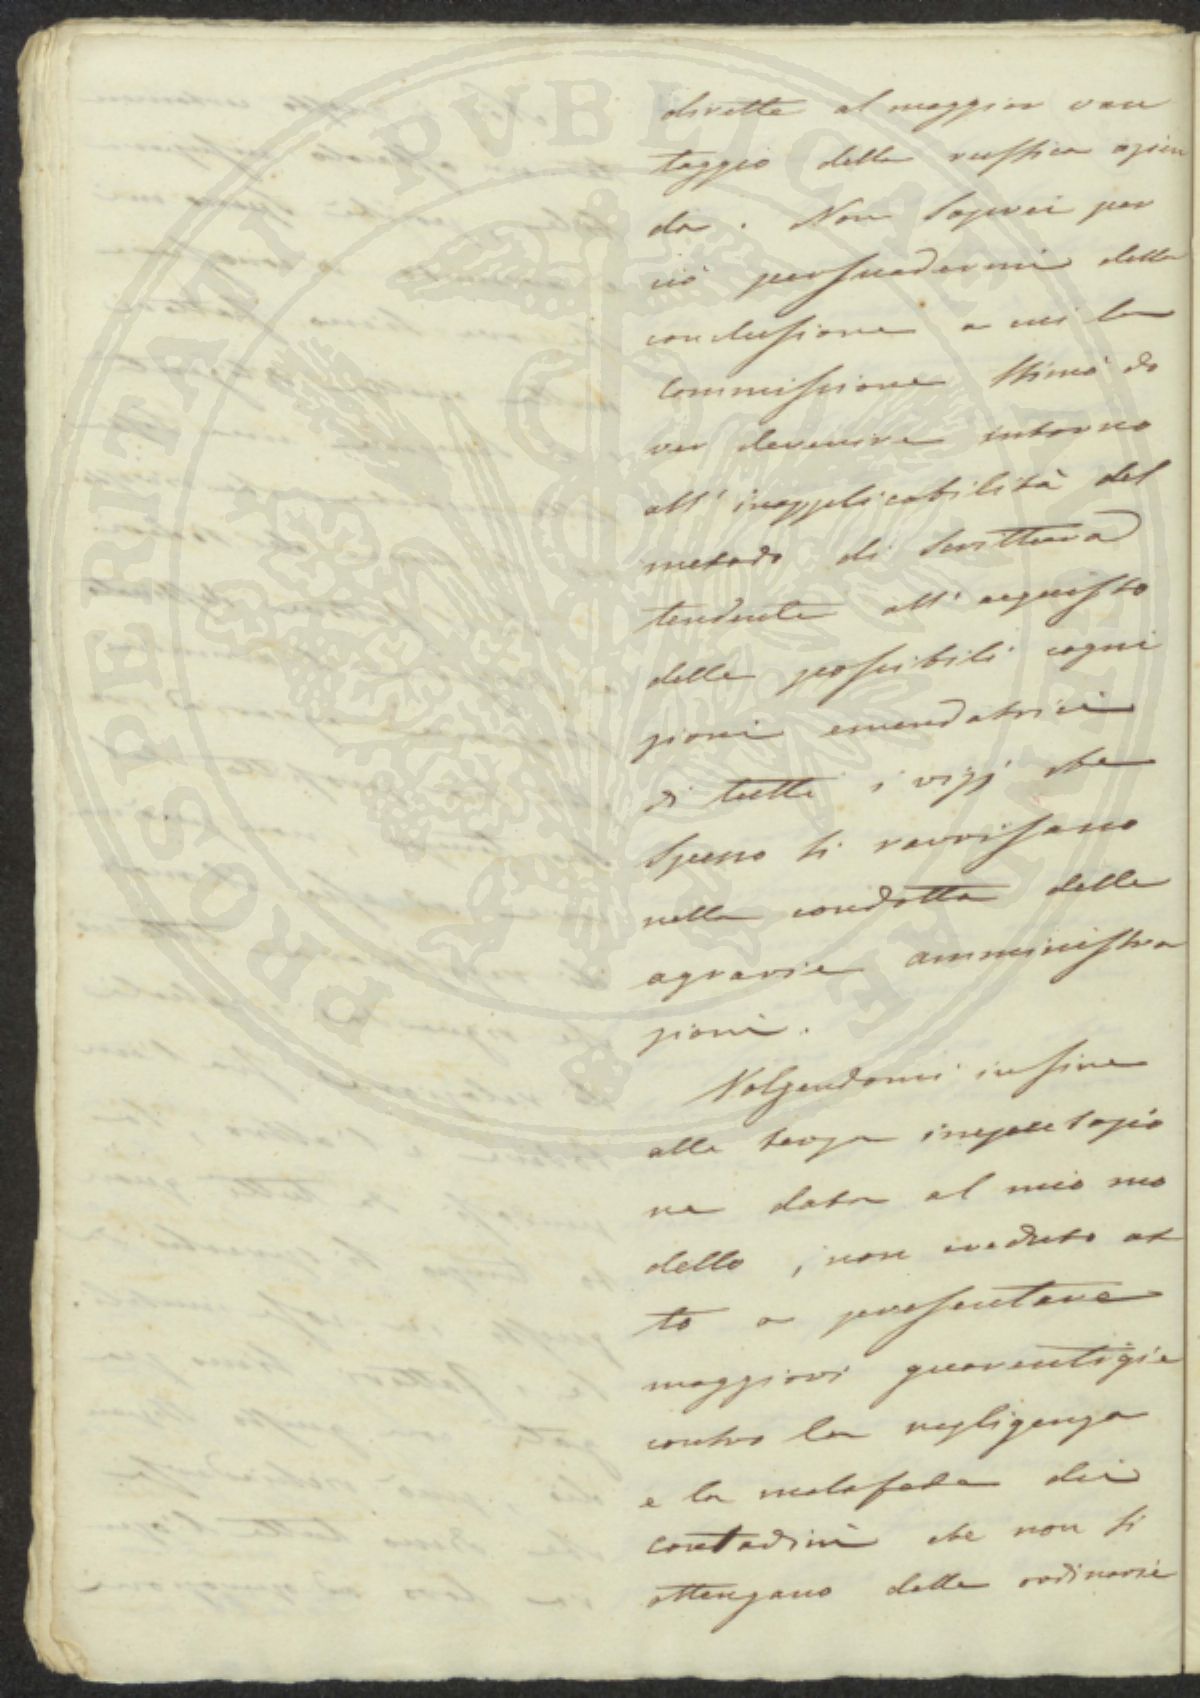 dirette al maggior van
taggio della rustica azien
da. Non saprei per
ciò persuadermi della
conclusione a cui la
Commissione stimò do
ver devenire intorno
all' inapplicabilità del
metodo di Scrittura
tendente all' acquisto
delle possibili cogni
zioni emendatrici
di tutti i vizj che
spesso si ravvisano
nella condotta delle
agrarie amministra
zioni.
Volgendomi infine
alla terza imputazio
ne data al mio mo
dello, non creduto at
to a presentare
maggiori guarentigie
contro la negligenza
e la malafede dei
contadini che non si
ottengano dalle ordinarie
PROSPERITATI PVBLICAE AVGENDAE